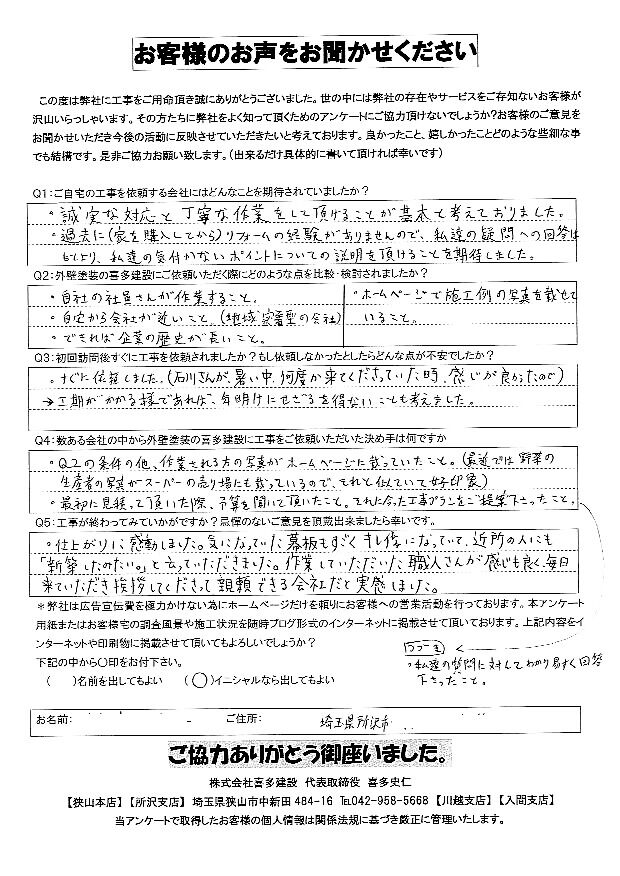 お客様のお声をお聞かせください
この度は弊社に工事をご用命頂き誠にありがとうございました。世の中には弊社の存在やサービスをご存知ないお客様が
沢山いらっしゃいます。その方たちに弊社をよく知って頂くためのアンケートにご協力頂けないでしょうか?お客様のご意見を
お聞かせいただき今後の活動に反映させていただきたいと考えております。良かったこと、嬉しかったことどのような些細な事
でも結構です。是非ご協力お願い致します。(出来るだけ具体的に書いて頂ければ幸いです)
Q1:ご自宅の工事を依頼する会社にはどんなことを期待されていましたか?
・誠実な対応と丁寧な作業をして頂けることが基本と考えておりました。
・過去に(家を購入してから)リフォームの経験がありませんので、私達の疑問への回答は
もとより、私達の気付かないポイントについての説明を頂けることを期待しました。
Q2:外壁塗装の喜多建設にご依頼いただく際にどのような点を比較・検討されましたか?
・自社の社員さんが作業すること。
・自宅から会社が近いこと。(地域密着型の会社)
・できれば企業の歴史が長いこと。
・ホームページで施工例の写真を載せて
いること。
Q3:初回訪問後すぐに工事を依頼されましたか?もし依頼しなかったとしたらどんな点が不安でしたか?
・すぐに依頼しました。(石川さんが、暑い中、何度か来てくださっていた時、感じが良かったので)
→工期がかかる様であれば、年明けにせざるを得ないことも考えました。
Q4:数ある会社の中から外壁塗装の喜多建設に工事をご依頼いただいた決め手は何ですか
・Q2の条件の他、作業される方の写真がホームページに載っていたこと。(最近では野菜の
生産者の写真がスーパーの売り場にも載っているので、それと似ていて好印象)
・最初に見積って頂いた際、予算を聞いて頂いたこと。それに合った工事プランをご提案下さったこと。
Q5:工事が終わってみていかがですか?忌憚のないご意見を頂戴出来ましたら幸いです。
・仕上がりに感動しました。気になっていた幕板もすごくキレイになっていて、近所の人にも
「新築したみたい。」と言っていただきました。作業していただいた職人さんが感じも良く、毎日
来ていただき挨拶してくださって親頼できる会社だと実感しました。
*弊社は広告宣伝費を極力かけない為にホームページだけを頼りにお客様への営業活動を行っております。本アンケート
用紙またはお客様宅の調査風景や施工状況を随時ブログ形式のインターネットに掲載させて頂いております。上記内容をイ
ンターネットや印刷物に掲載させて頂いてもよろしいでしょうか?
下記の中から○印をお付下さい。
( )名前を出してもよい (○)イニシャルなら出してもよい
・私達の質問に対してわかり易すく回答
下さったこと。
お名前: ご住所: 埼玉県所沢市
ご協力ありがとう御座いました。
株式会社喜多建設 代表取締役 喜多史仁
【狭山本店】【所沢支店】 埼玉県狭山市中新田484-16 ℡042-958-5668 【川越支店】【入間支店】
当アンケートで取得したお客様の個人情報は関係法規に基づき厳正に管理いたします。